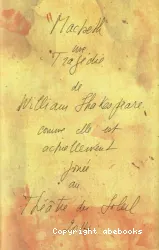 "Macbeth
une
Tragédie
de
William Shakespeare
comme elle est
actuellement
jouée
au
Théâtre du Soleil